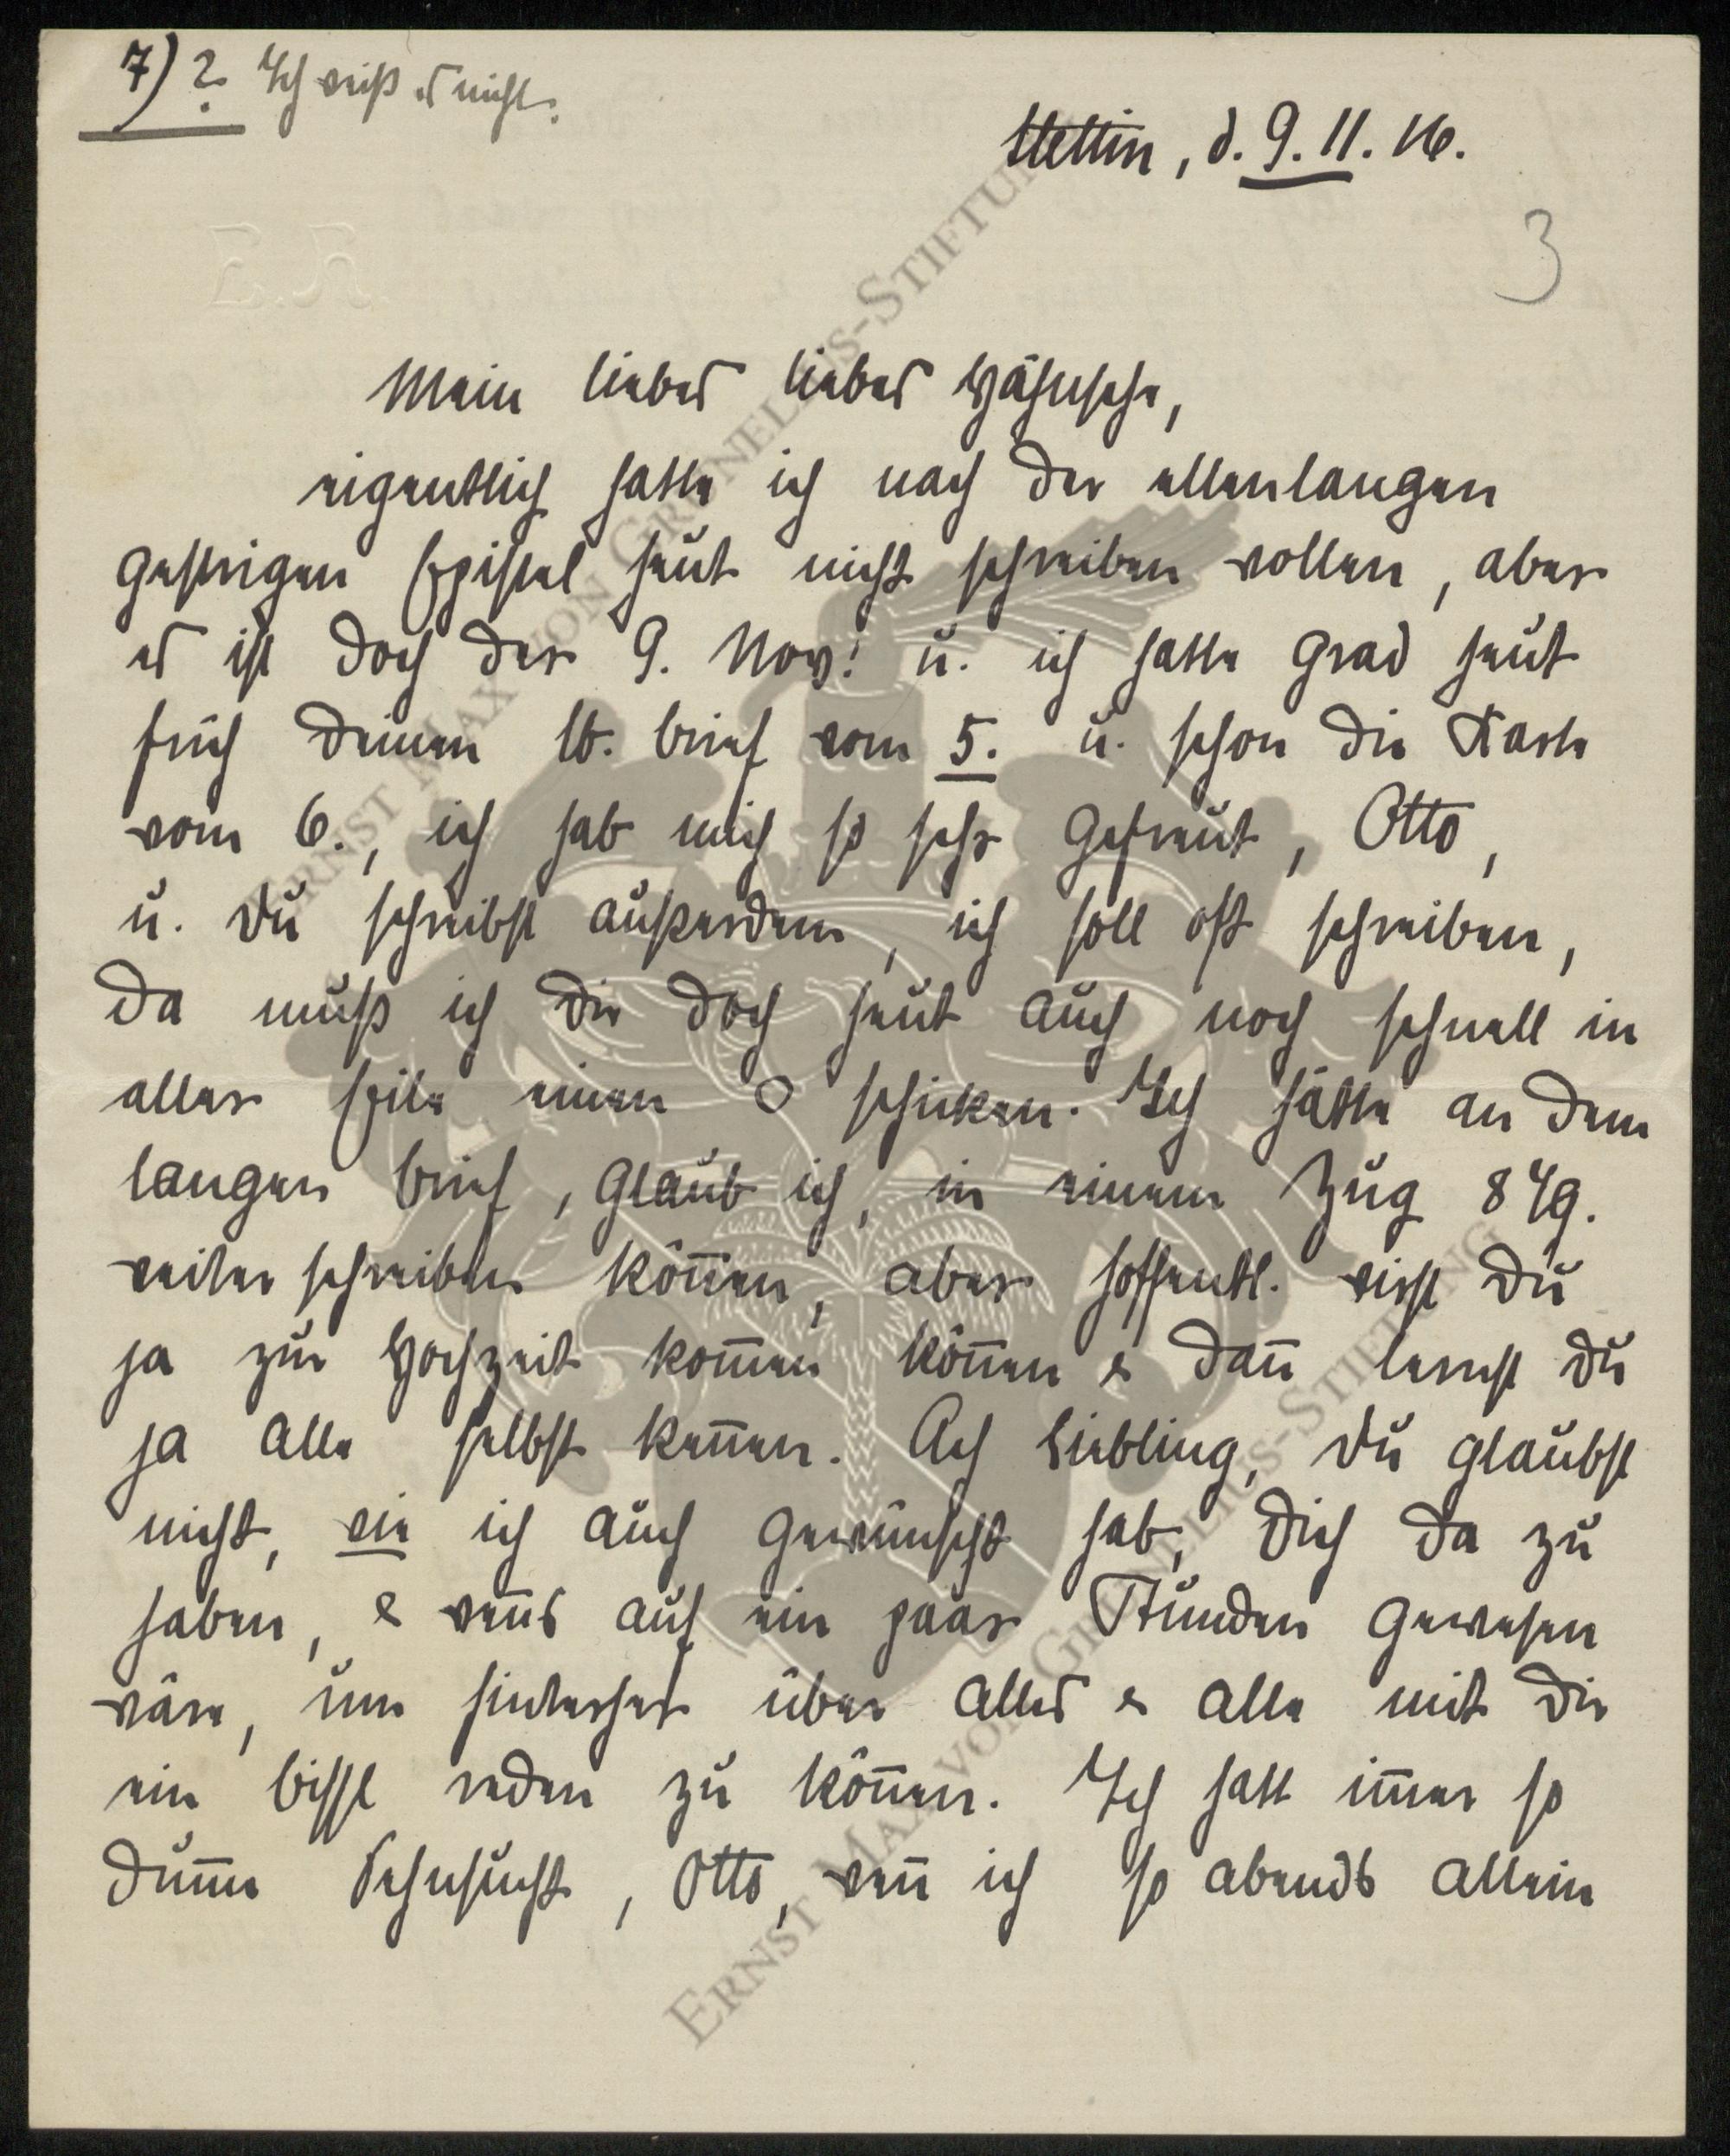 7) ? Ich weiß es nicht.
Stettin, d. 9. 11. 16.
3
E.K.
Mein liebes liebes Hähnsche,
eigentlich hatte ich nach der ellenlangen
gestrigen Epistel heut nicht schreiben wollen, aber
es ist doch der 9. Nov! u. ich hatte grad heut
früh Deinen lb. Brief vom 5. u. schon die Karte
vom 6., ich hab mich so sehr gefreut, Otto,
u. Du schreibst außerdem, ich soll oft schreiben,
da muß ich Dir doch heut auch noch schnell in
aller Eile einen O schicken. Ich hätte an dem
langen Brief, glaub ich, in einem Zug 8 Tg.
weiter schreiben können, aber hoffentl. wirst Du
ja zur Hochzeit kommen können & dann lernst Du
ja alle selbst kennen. Ach Liebling, Du glaubst
nicht, wie ich auch gewünscht hab, Dich da zu
haben, & wenns auf ein paar Stunden gewesen
wäre, um hinterher über alles & alle mit Dir
ein bissl reden zu können. Ich hatt immer so
dumme Sehnsucht, Otto, wenn ich so abends allein
ERNST MAX VON GRUNELIUS-STIFTUNG
ERNST MAX VON GRUNELIUS-STIFTUNG